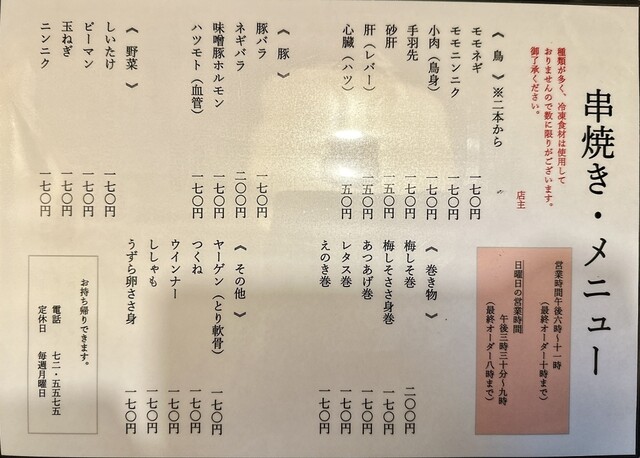 串焼き・メニュー
種類が多く、冷凍食材は使用して
おりませんので数に限りがございます。
御了承ください。
店主
営業時間午後六時〜十一時
(最終オーダー十時まで)
日曜日の営業時間
午後三時三十分〜九時
(最終オーダー八時まで)
《 鳥 》※二本から
モモネギ 一七〇円
モモニンニク 一七〇円
小肉(鳥身) 一七〇円
手羽先 一七〇円
砂肝 一五〇円
肝(レバー) 一五〇円
心臓(ハツ) 一五〇円
《 豚 》
豚バラ 一七〇円
ネギバラ 二〇〇円
味噌豚ホルモン 一七〇円
ハツモト(血管) 一七〇円
《 野菜 》
しいたけ 一七〇円
ピーマン 一七〇円
玉ねぎ 一七〇円
ニンニク 一七〇円
《 巻き物 》
梅しそ巻 二〇〇円
梅しそささ身巻 一七〇円
あつあげ巻 一七〇円
レタス巻 一七〇円
えのき巻 一七〇円
《 その他 》
ヤーゲン(とり軟骨) 一七〇円
つくね 一七〇円
ウインナー 一七〇円
ししゃも 一七〇円
うずら卵ささ身 一七〇円
お持ち帰りできます。
電話 七二・五五七五
定休日 毎週月曜日